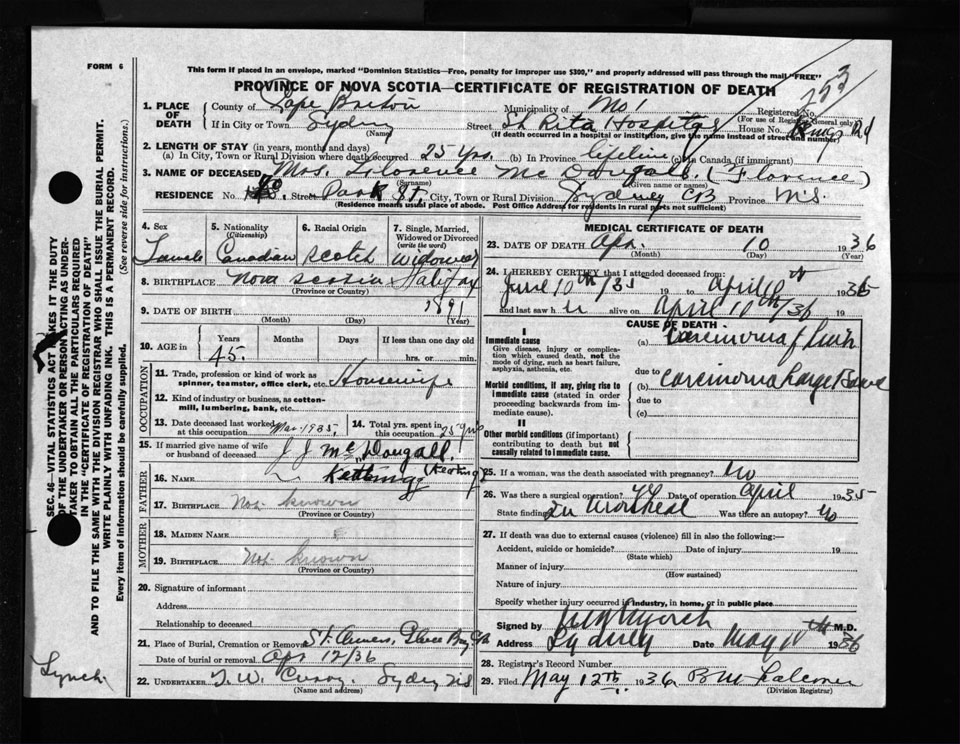 FORM 6
This form if placed in an envelope, marked "Dominion Statistics—Free, penalty for improper use $300," and properly addressed will pass through the mail "FREE"
PROVINCE OF NOVA SCOTIA—CERTIFICATE OF REGISTRATION OF DEATH
253
1. PLACE OF DEATH
County of Cape Breton Municipality of No 1 Registered No.
(For use of Registrar General only)
If in City or Town Sydney Street St Rita Hospital House No. Kings Rd
(Name) (If death occurred in a hospital or institution, give the name instead of street and number)
2. LENGTH OF STAY (in years, months and days)
(a) In City, Town or Rural Division where death occurred 25 yrs. (b) In Province lifetime (c) In Canada (if immigrant)
3. NAME OF DECEASED Mrs. Florence Mc Dougall. (Florence)
(Surname) (Given name or names)
RESIDENCE No. Street Park St, City, Town or Rural Division Sydney CB Province N.S.
(Residence means usual place of abode. Post Office Address for residents in rural parts not sufficient)
4. Sex Female
5. Nationality (Citizenship) Canadian
6. Racial Origin Scotch
7. Single, Married, Widowed or Divorced (write the word) Widowed
8. BIRTHPLACE Nova Scotia Halifax
(Province or Country)
9. DATE OF BIRTH 1891
(Month) (Day) (Year)
10. AGE in Years Months Days If less than one day old
45. hrs. or min.
OCCUPATION
11. Trade, profession or kind of work as spinner, teamster, office clerk, etc. Housewife
12. Kind of industry or business, as cotton-mill, lumbering, bank, etc.
13. Date deceased last worked at this occupation Mar. 1935. 14. Total yrs. spent in this occupation 25 yrs
15. If married give name of wife or husband of deceased J J McDougall.
FATHER
16. NAME (Keating)
17. BIRTHPLACE Not known
(Province or Country)
MOTHER
18. MAIDEN NAME
19. BIRTHPLACE Not known
(Province or Country)
20. Signature of informant
Address
Relationship to deceased
21. Place of Burial, Cremation or Removal St. Annes, Glace Bay
Date of burial or removal Apr 12/36
22. UNDERTAKER T. W. Curry. Sydney NS
(Name and address)
MEDICAL CERTIFICATE OF DEATH
23. DATE OF DEATH Apr. 10 1936
(Month) (Day) (Year)
24. I HEREBY CERTIFY that I attended deceased from:
June 10th/35 19 to April 10th 1936
and last saw h er alive on April 10th/36 19
CAUSE OF DEATH
I
Immediate cause
Give disease, injury or complication which caused death, not the mode of dying, such as heart failure, asphyxia, asthenia, etc.
(a) Carcinoma of
due to
Morbid conditions, if any, giving rise to immediate cause (stated in order proceeding backwards from immediate cause).
(b) Carcinoma Large Bowel
due to
(c)
II
Other morbid conditions (if important) contributing to death but not causally related to immediate cause.
25. If a woman, was the death associated with pregnancy? No
26. Was there a surgical operation? yes Date of operation April 1935
State finding In Montreal Was there an autopsy? No
27. If death was due to external causes (violence) fill in also the following:—
Accident, suicide or homicide? Date of injury 19
(State which)
Manner of injury
(How sustained)
Nature of injury
Specify whether injury occurred in industry, in home, or in public place
Signed by Lynch M.D.
Address Sydney Date May 11th 1936
28. Registrar's Record Number
29. Filed May 12th, 1936 B M Falconer
(Division Registrar)
SEC. 46—VITAL STATISTICS ACT MAKES IT THE DUTY
OF THE UNDERTAKER OR PERSON ACTING AS UNDER-
TAKER TO OBTAIN ALL THE PARTICULARS REQUIRED
IN THE "CERTIFICATE OF REGISTRATION OF DEATH"
AND TO FILE THE SAME WITH THE DIVISION REGISTRAR WHO SHALL ISSUE THE BURIAL PERMIT.
WRITE PLAINLY WITH UNFADING INK. THIS IS A PERMANENT RECORD.
Every item of information should be carefully supplied. (See reverse side for instructions.)
Lynch.